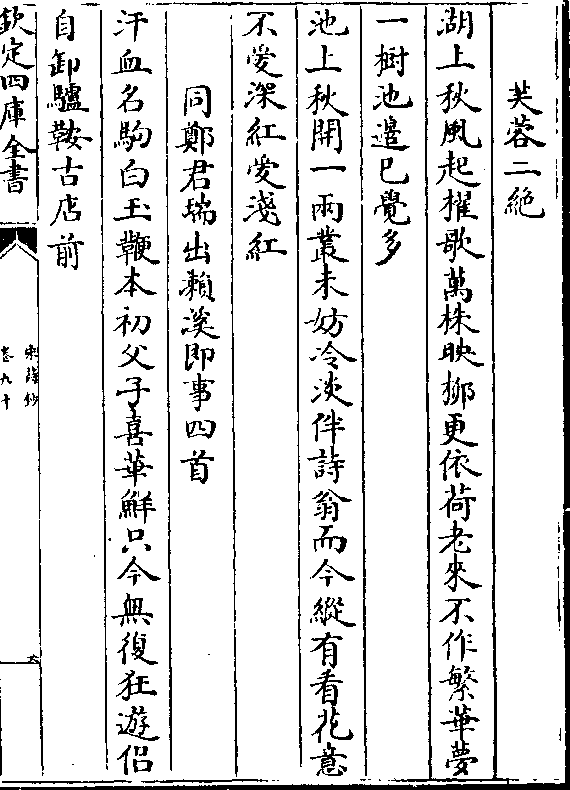 芙蓉二絶
湖上秋風起櫂歌萬株映栁更依荷老來不作繁華夢
一樹池邉已覺多
池上秋開一兩叢未妨冷淡伴詩翁而今縱有看花意
不愛深紅愛淺紅
同鄭君瑞出瀨溪即事四首
汗血名駒白玉鞭本初父子喜華鮮只今無復狂遊侣
自卸驢鞍古店前
欽定四庫全書
宋詩鈔
卷九十